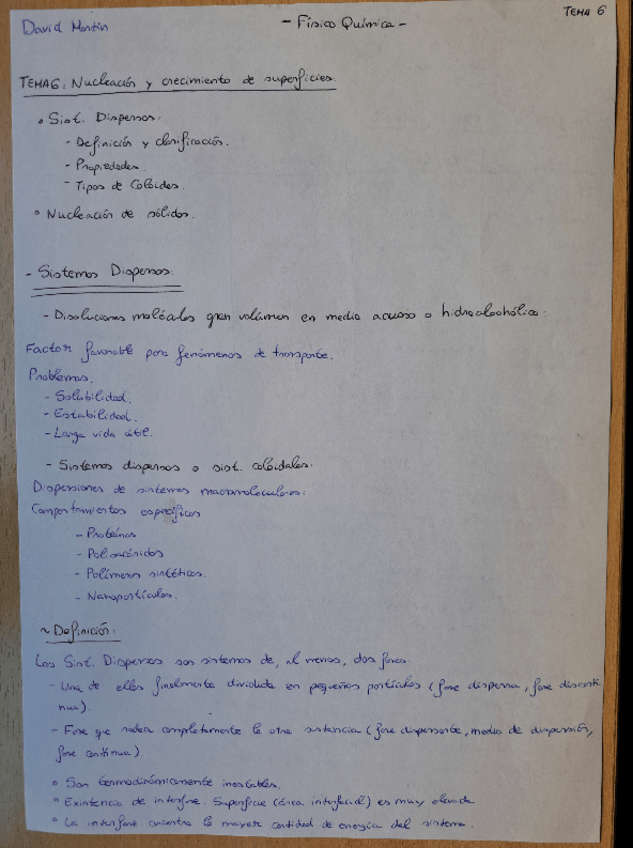 David Martín
- Físico Química -
TEMA 6
TEMA 6: Nucleación y crecimiento de superficies.
• Sist. Dispersos:
- Definición y clasificación.
- Propiedades.
- Tipos de Coloides.
• Nucleación de sólidos.
- Sistemas Dispersos:
- Disoluciones moléculas gran volúmen en medio acuoso o hidroalcohólico:
Factor favorable para fenómenos de transporte.
Problemas.
- Solubilidad.
- Estabilidad.
- Larga vida útil.
- Sistemas dispersos o sist. coloidales:
Dispersiones de sistemas macromoleculares:
Comportamientos específicos
- Proteínas
- Polisacáridos
- Polímeros sintéticos.
- Nanopartículas.
~ Definición:
Los Sist. Dispersos son sistemas de, al menos, dos fases:
- Una de ellas finalmente dividida en pequeñas partículas (fase dispersa, fase discontí-
nua).
- Fase que rodea completamente la otra sustancia (fase dispersante, medio de dispersión,
fase contínua).
• Son termodinámicamente inestables.
• Existencia de interfase. Superficie (área interfacial) es muy elevada
• La interfase encuentra la mayor cantidad de energía del sistema.